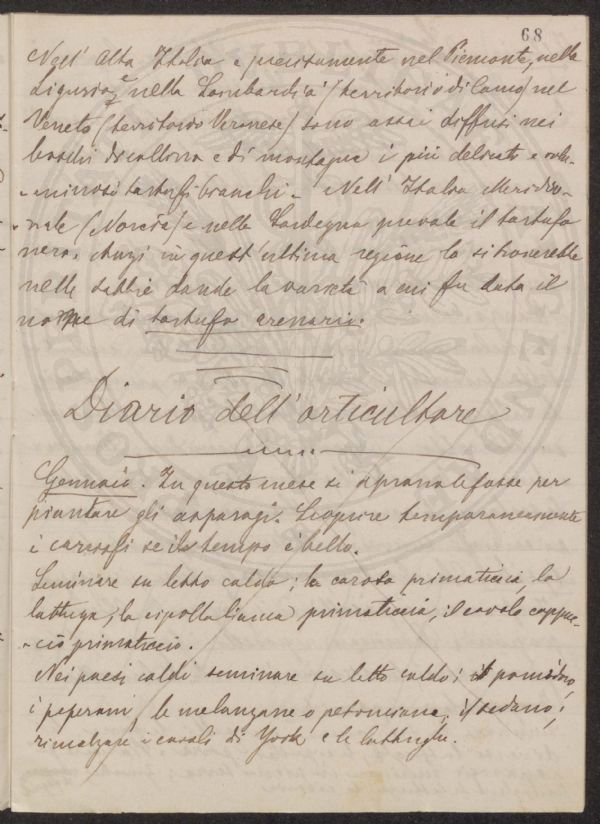 68
Nell' Alta Italia e precisamente nel Piemonte, nella
Liguria, nella Lombardia (territorio di Como) nel
Veneto (territorio Veronese) sono assai diffusi nei
boschi di collina e di montagna i più delicati e volu-
-minosi tartufi bianchi. Nell' Italia Meridio-
nale (Norcia) e nella Sardegna prevale il tartufo
nero, anzi in quest'ultima regione lo si troverebbe
nelle sabbie donde la varietà a cui fu dato il
nome di tartufo arenario.
Diario dell'orticultore
Gennaio. In questo mese si aprono le fosse per
piantare gli asparagi. Scoprire temporaneamente
i carciofi se il tempo è bello.
Seminare su letto caldo; la carota primaticcia, la
lattuga, la cipolla bianca primaticcia, il cavolo cappuc-
-cio primaticcio.
Nei paesi caldi seminare su letto caldo; il pomidoro,
i peperoni, le melanzane o petonciane, il sedano;
rincalzare i cavoli di York e le lattughe.